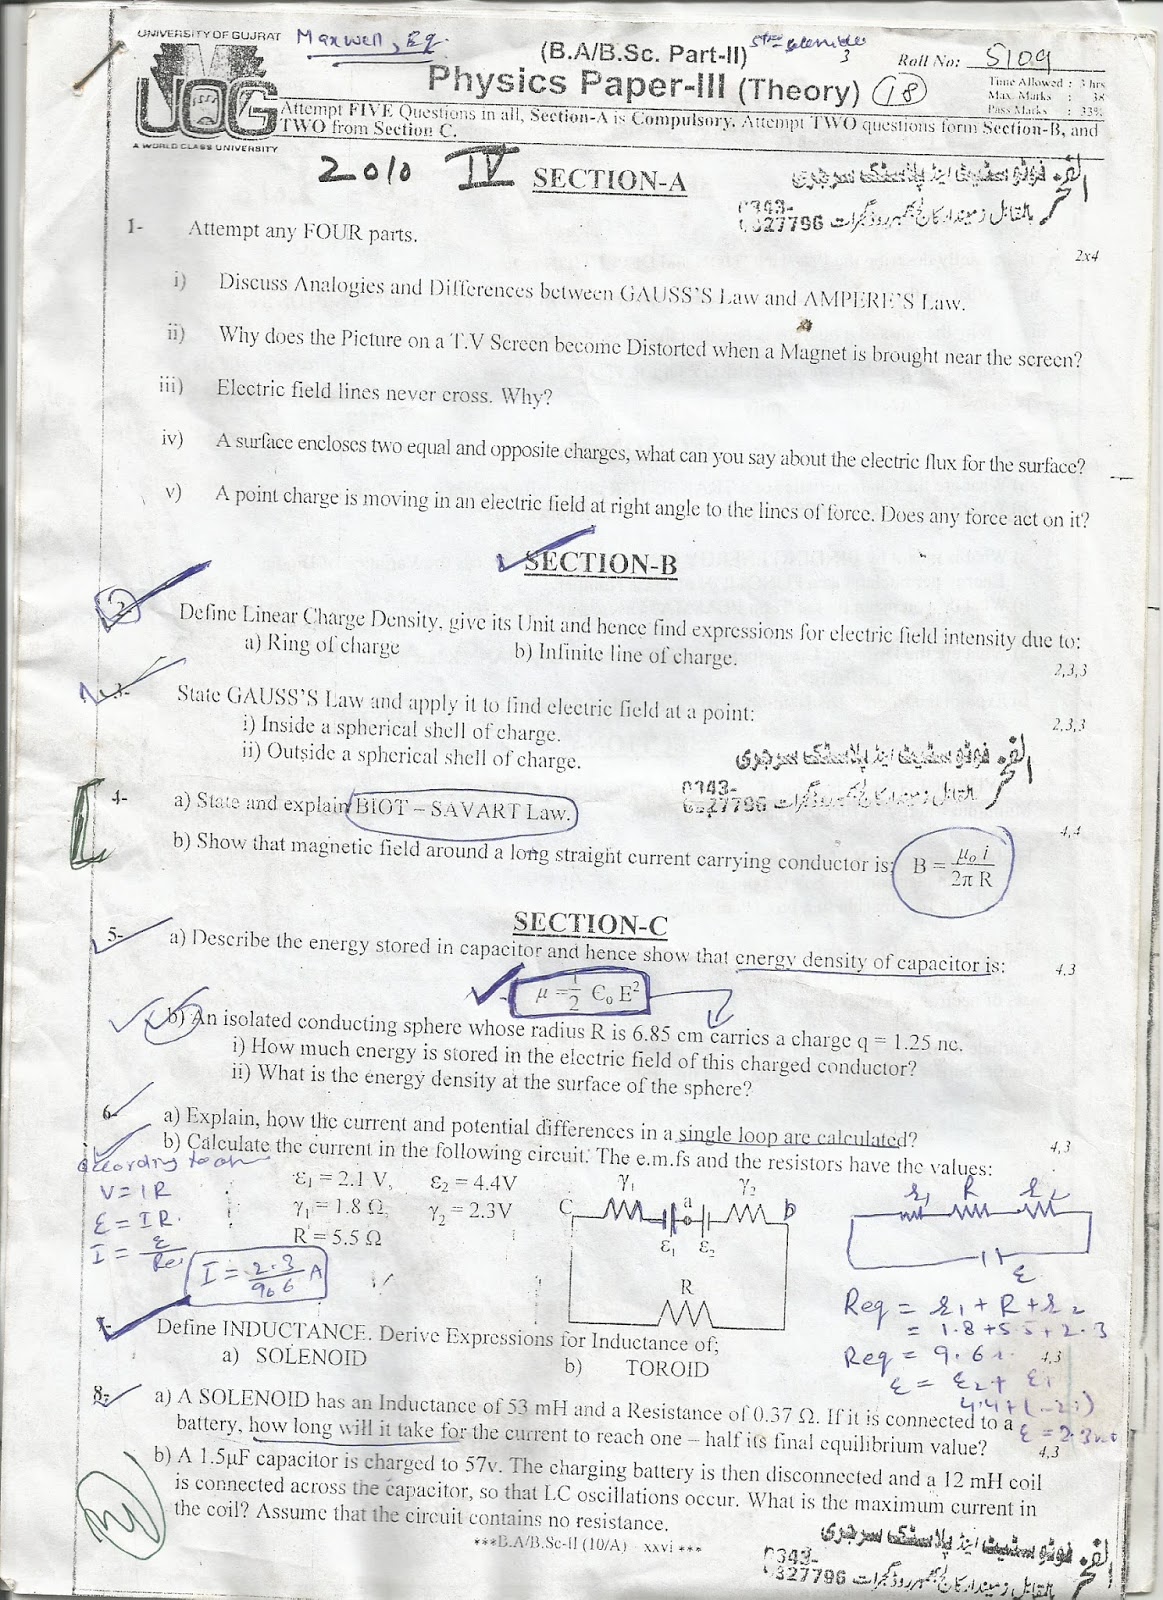 UNIVERSITY OF GUJRAT
Maxwell, Eq.
(B.A/B.Sc. Part-II)
3
Roll No: 5109
Physics Paper-III (Theory)
18
Time Allowed : 3 hrs
Max. Marks : 38
Pass Marks : 33%
UOG
Attempt FIVE Questions in all, Section-A is Compulsory. Attempt TWO questions form Section-B, and
TWO from Section C.
A WORLD CLASS UNIVERSITY
2010 IV
SECTION-A
الفخر فوٹو سٹیٹ اینڈ پلاسٹک سرجری
0343-
6327796
1- Attempt any FOUR parts.
2x4
i) Discuss Analogies and Differences between GAUSS'S Law and AMPERE'S Law.
ii) Why does the Picture on a T.V Screen become Distorted when a Magnet is brought near the screen?
iii) Electric field lines never cross. Why?
iv) A surface encloses two equal and opposite charges, what can you say about the electric flux for the surface?
v) A point charge is moving in an electric field at right angle to the lines of force. Does any force act on it?
SECTION-B
2- Define Linear Charge Density, give its Unit and hence find expressions for electric field intensity due to:
a) Ring of charge b) Infinite line of charge.
2,3,3
3- State GAUSS'S Law and apply it to find electric field at a point:
i) Inside a spherical shell of charge.
2,3,3
ii) Outside a spherical shell of charge.
الفخر فوٹو سٹیٹ اینڈ پلاسٹک سرجری
0343-
6327796
4- a) State and explain BIOT – SAVART Law.
4,4
b) Show that magnetic field around a long straight current carrying conductor is: B = μ₀ i / 2π R
SECTION-C
5- a) Describe the energy stored in capacitor and hence show that energy density of capacitor is:
4,3
μ = 1/2 ∈₀ E²
b) An isolated conducting sphere whose radius R is 6.85 cm carries a charge q = 1.25 nc.
i) How much energy is stored in the electric field of this charged conductor?
ii) What is the energy density at the surface of the sphere?
6- a) Explain, how the current and potential differences in a single loop are calculated?
4,3
b) Calculate the current in the following circuit. The e.m.fs and the resistors have the values:
ε₁ = 2.1 V, ε₂ = 4.4V
γ₁ = 1.8 Ω, γ₂ = 2.3V
R = 5.5 Ω
γ₁ a γ₂
C b
ε₁ ε₂
R
according to
V = IR
ε = IR.
I = ε / Req
I = 2.3 / 9.6 A
r₁ R r₂
ε
Req = r₁ + R + r₂
= 1.8 + 5.5 + 2.3
Req = 9.6
ε = ε₂ + ε₁
4.4 + (-2.1)
ε = 2.3
7- Define INDUCTANCE. Derive Expressions for Inductance of;
4,3
a) SOLENOID b) TOROID
8- a) A SOLENOID has an Inductance of 53 mH and a Resistance of 0.37 Ω. If it is connected to a
battery, how long will it take for the current to reach one – half its final equilibrium value?
4,3
b) A 1.5μF capacitor is charged to 57v. The charging battery is then disconnected and a 12 mH coil
is connected across the capacitor, so that LC oscillations occur. What is the maximum current in
the coil? Assume that the circuit contains no resistance.
***B.A/B.Sc-II (10/A) - xxvi ***
الفخر فوٹو سٹیٹ اینڈ پلاسٹک سرجری
0343-
6327796